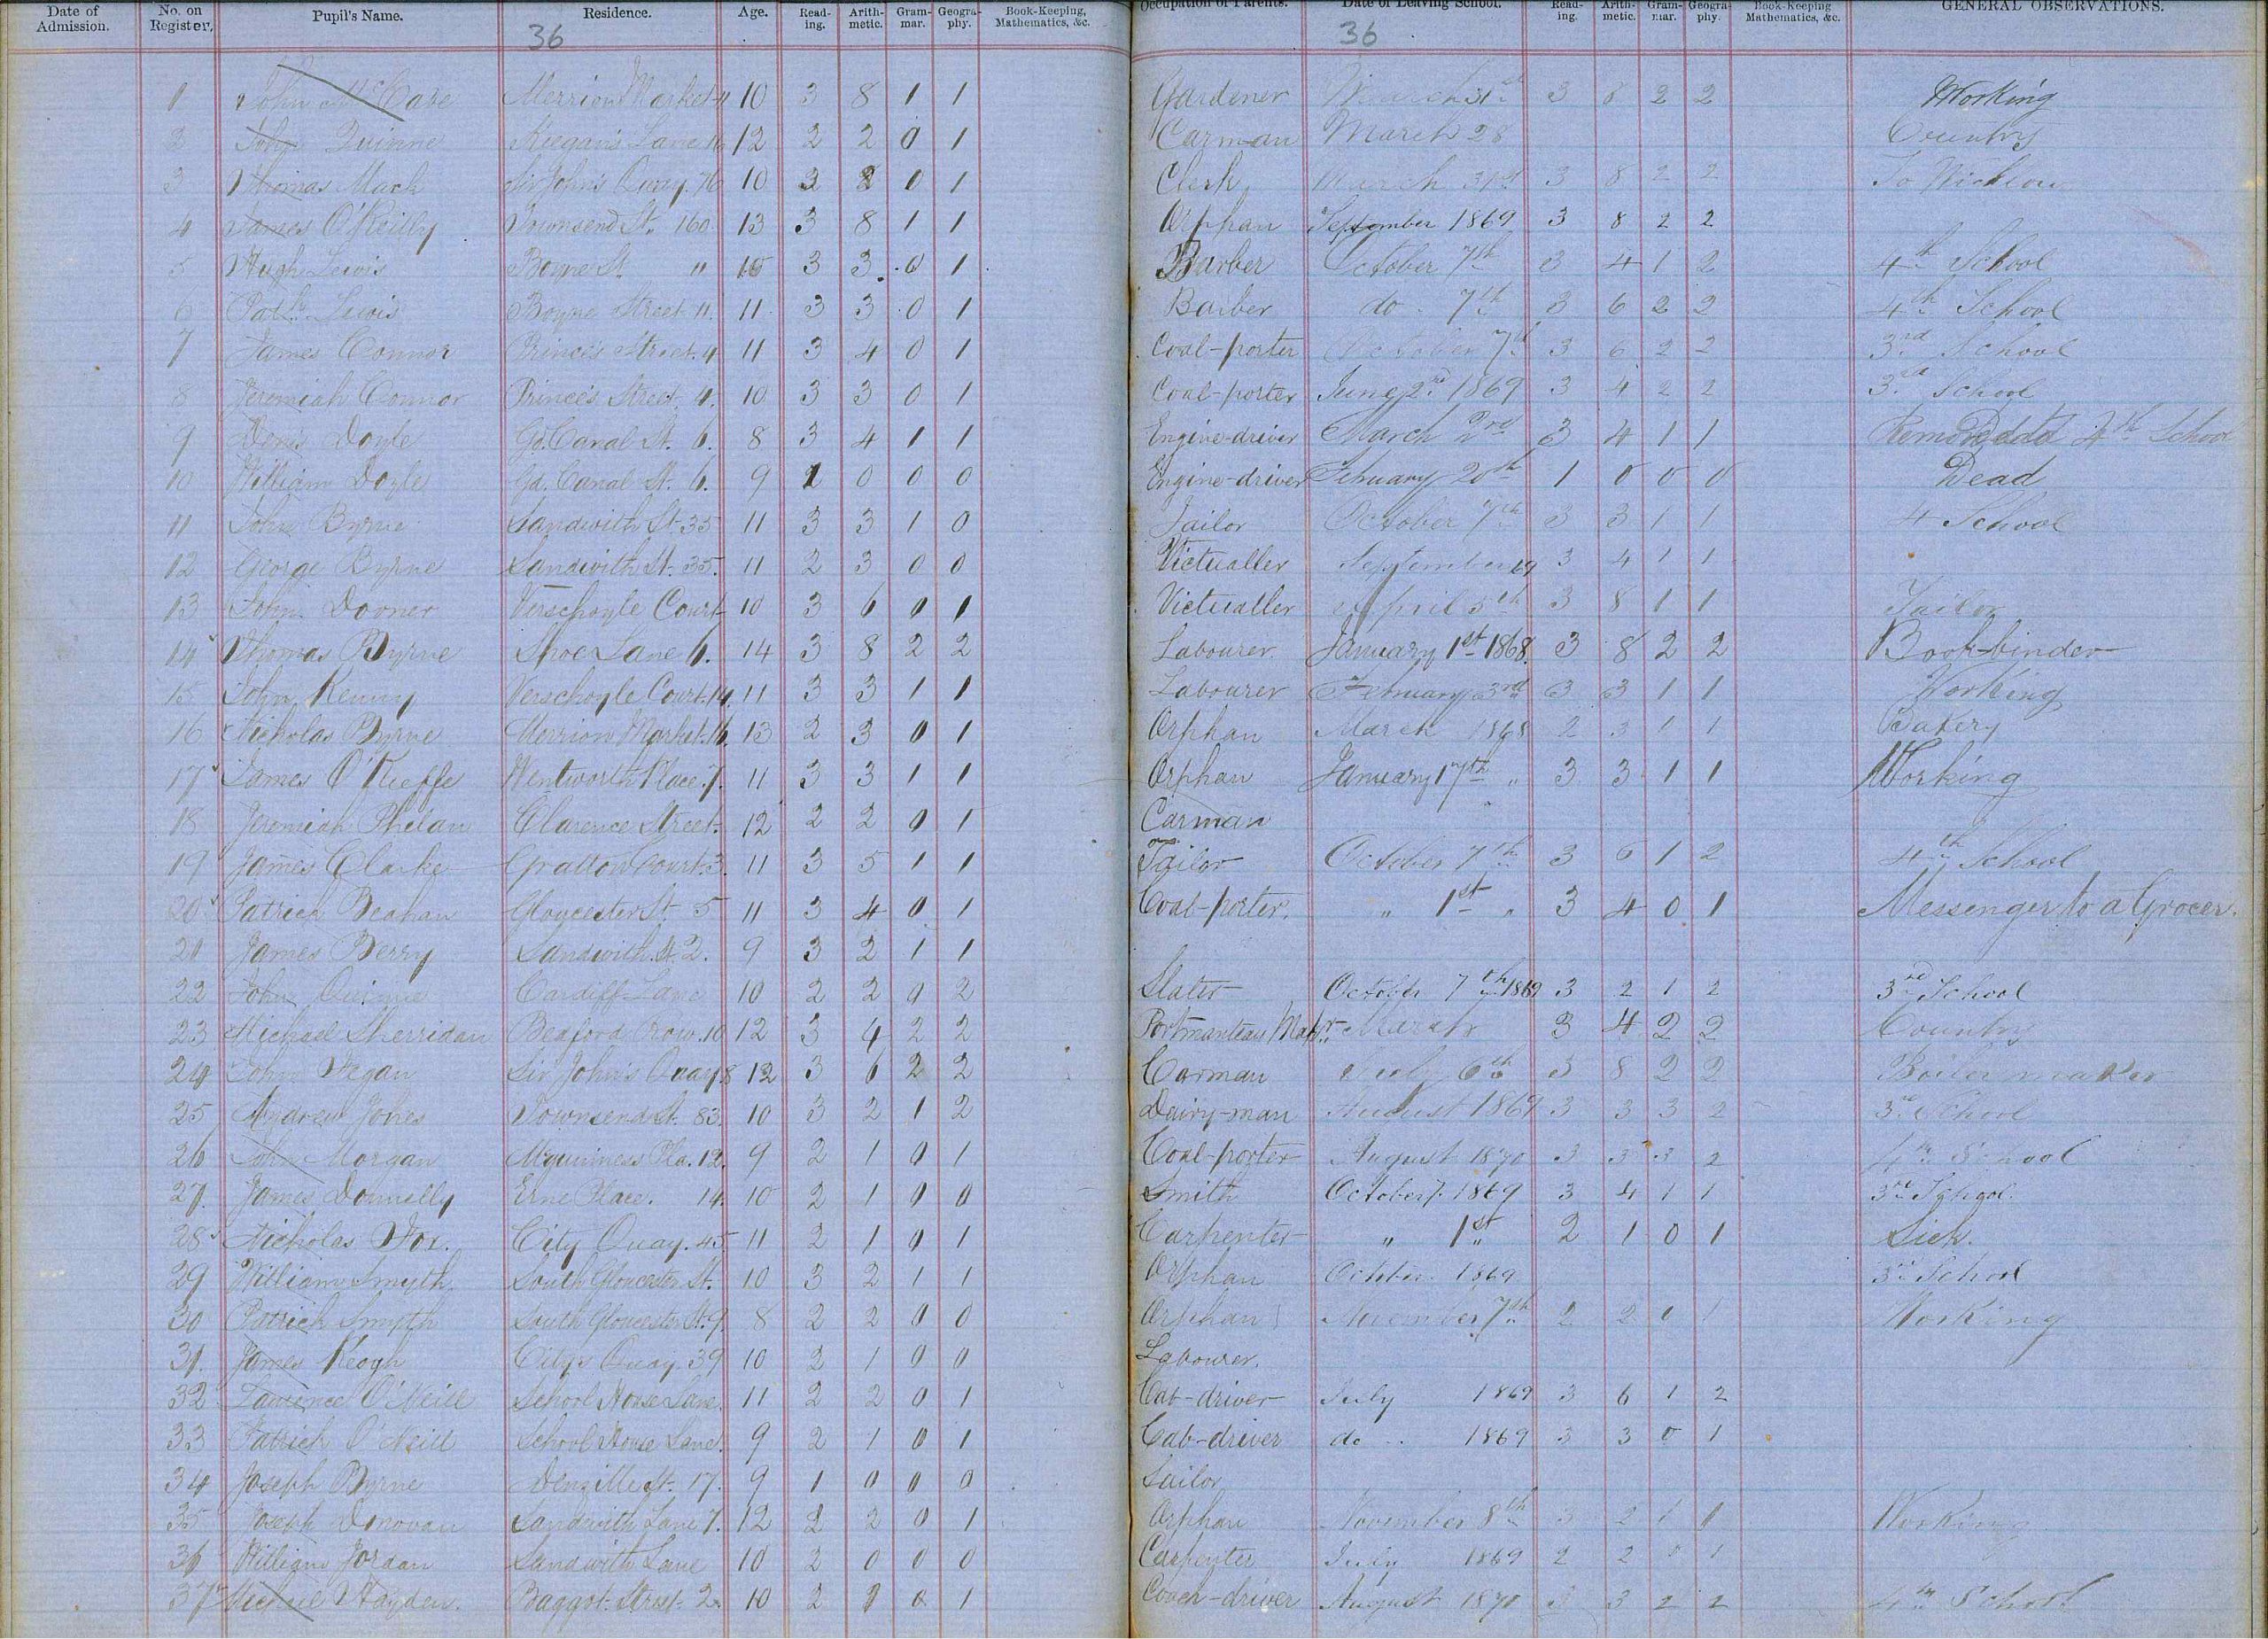 Date of Admission. No. on Register. Pupil's Name. Residence. Age. Read-ing. Arith-metic. Gram-mar. Geogra-phy. Book-Keeping, Mathematics, &c. Occupation of Parents. Date of Leaving School. Read-ing. Arith-metic. Gram-mar. Geogra-phy. Book-Keeping Mathematics, &c. GENERAL OBSERVATIONS.
36 36
1 John McCabe Merrion Market 4 10 3 8 1 1 Gardener March 31st 3 8 2 2 Working
2 John Quinne Keegan's Lane 12 2 2 0 1 Carman March 28 Country
3 Thomas Mack Sir John's Quay. 76 10 3 8 0 1 Clerk March 31st 3 8 2 2 To Wicklow
4 James O'Reilly Townsend St. 160 13 3 8 1 1 Orphan September 1869 3 8 2 2
5 Hugh Lewis Boyne St " 3 3 0 1 Barber October 7th 3 4 1 2 4th School
6 Patk. Lewis Boyne Street 11. 11 3 3 0 1 Barber do. 7th 3 6 2 2 4th School
7 James Connor Prince's Street. 4 11 3 4 0 1 Coal-porter October 7th 3 6 2 2 3rd School
8 Jeremiah Connor Prince's Street 4. 10 3 3 0 1 Coal-porter June 2nd 1869 3 4 2 2 3rd School
9 Denis Doyle Gd. Canal St. 6. 8 3 4 1 1 Engine-driver March 2nd 3 4 1 1 Removed to 4th School
10 William Doyle Gd. Canal St. 6. 9 1 0 0 0 Engine-driver February 20th 1 0 0 0 Dead
11 John Byrne Sandwith St. 35 11 3 3 1 0 Tailor October 7th 3 3 1 1 4 School
12 George Byrne Sandwith St. 35. 11 2 3 0 0 Victualler September 69 3 4 1 1
13 John Dooner Verschoyle Court 10 3 6 0 1 Victualler April 5th 3 8 1 1 Tailor
14 Thomas Byrne Shoe Lane 6. 14 3 8 2 2 Labourer January 1st 1868. 3 8 2 2 Book-binder
15 John Kenny Verschoyle Court. 14. 11 3 3 1 1 Labourer February 3rd 3 3 1 1 Working
16 Nicholas Byrne Merrion Market. 16. 13 2 3 0 1 Orphan March 1868 2 3 1 1 Bakery
17 James O'Kieffe Wentworth Place. 7. 11 3 3 1 1 Orphan January 17th " 3 3 1 1 Working
18 Jeremiah Phelan Clarence Street. 12 2 2 0 1 Carman
19 James Clarke Grattan Court. 3. 11 3 5 1 1 Tailor October 7th 3 6 1 2 4th School
20 Patrick Beahan Gloucester St. 5 11 3 4 0 1 Coal-porter. " 1st " 3 4 0 1 Messenger to a Grocer.
21 James Berry Sandwith St. 2. 9 3 2 1 1
22 John Quinne Cardiff Lane 10 2 2 0 2 Slater October 7th 1869 3 2 1 2 3rd School
23 Michael Sherridan Beaford Row. 10 12 3 4 2 2 Portmanteau Makr. March 3 4 2 2 Country
24 John Fegan Sir John's Quay 8 12 3 6 2 2 Carman July 6th 3 8 2 2 Boiler maker
25 Andrew Jones Townsend St. 83. 10 3 2 1 2 Dairy-man August 1869 3 3 3 2 3rd School
26 John Morgan McGuinness Pla. 12. 9 2 1 0 1 Coal-porter August 1870 3 3 3 2 4th School
27. James Donnelly Erne Place. 14. 10 2 1 0 0 Smith October 7. 1869 3 4 1 1 3rd School.
28 Nicholas Fox. City Quay. 45 11 2 1 0 1 Carpenter " 1st " 2 1 0 1 Sick.
29 William Smyth. South Gloucester St. 10 3 2 1 1 Orphan October 1869 3rd School
30 Patrick Smyth South Gloucester St. 9. 8 2 2 0 0 Orphan November 7th 2 2 0 1 Working
31. James Keogh City Quay. 39 10 2 1 0 0 Labourer.
32 Laurence O'Neill School House Lane. 11 2 2 0 1 Cab-driver July 1869 3 6 1 2
33 Patrick O'Neill School House Lane. 9 2 1 0 1 Cab-driver do 1869 3 3 0 1
34 Joseph Byrne Denzille St. 17. 9 1 0 0 0 Sailor
35 Joseph Donovan Sandwith Lane 7. 12 2 2 0 1 Orphan November 8th 3 2 1 1 Working
36 William Jordan Sandwith Lane 10 2 0 0 0 Carpenter July 1869 2 2 0 1
37 Michael Hayden. Baggot Street 2. 10 2 1 0 1 Coach-driver August 1870 3 3 2 2 4th School